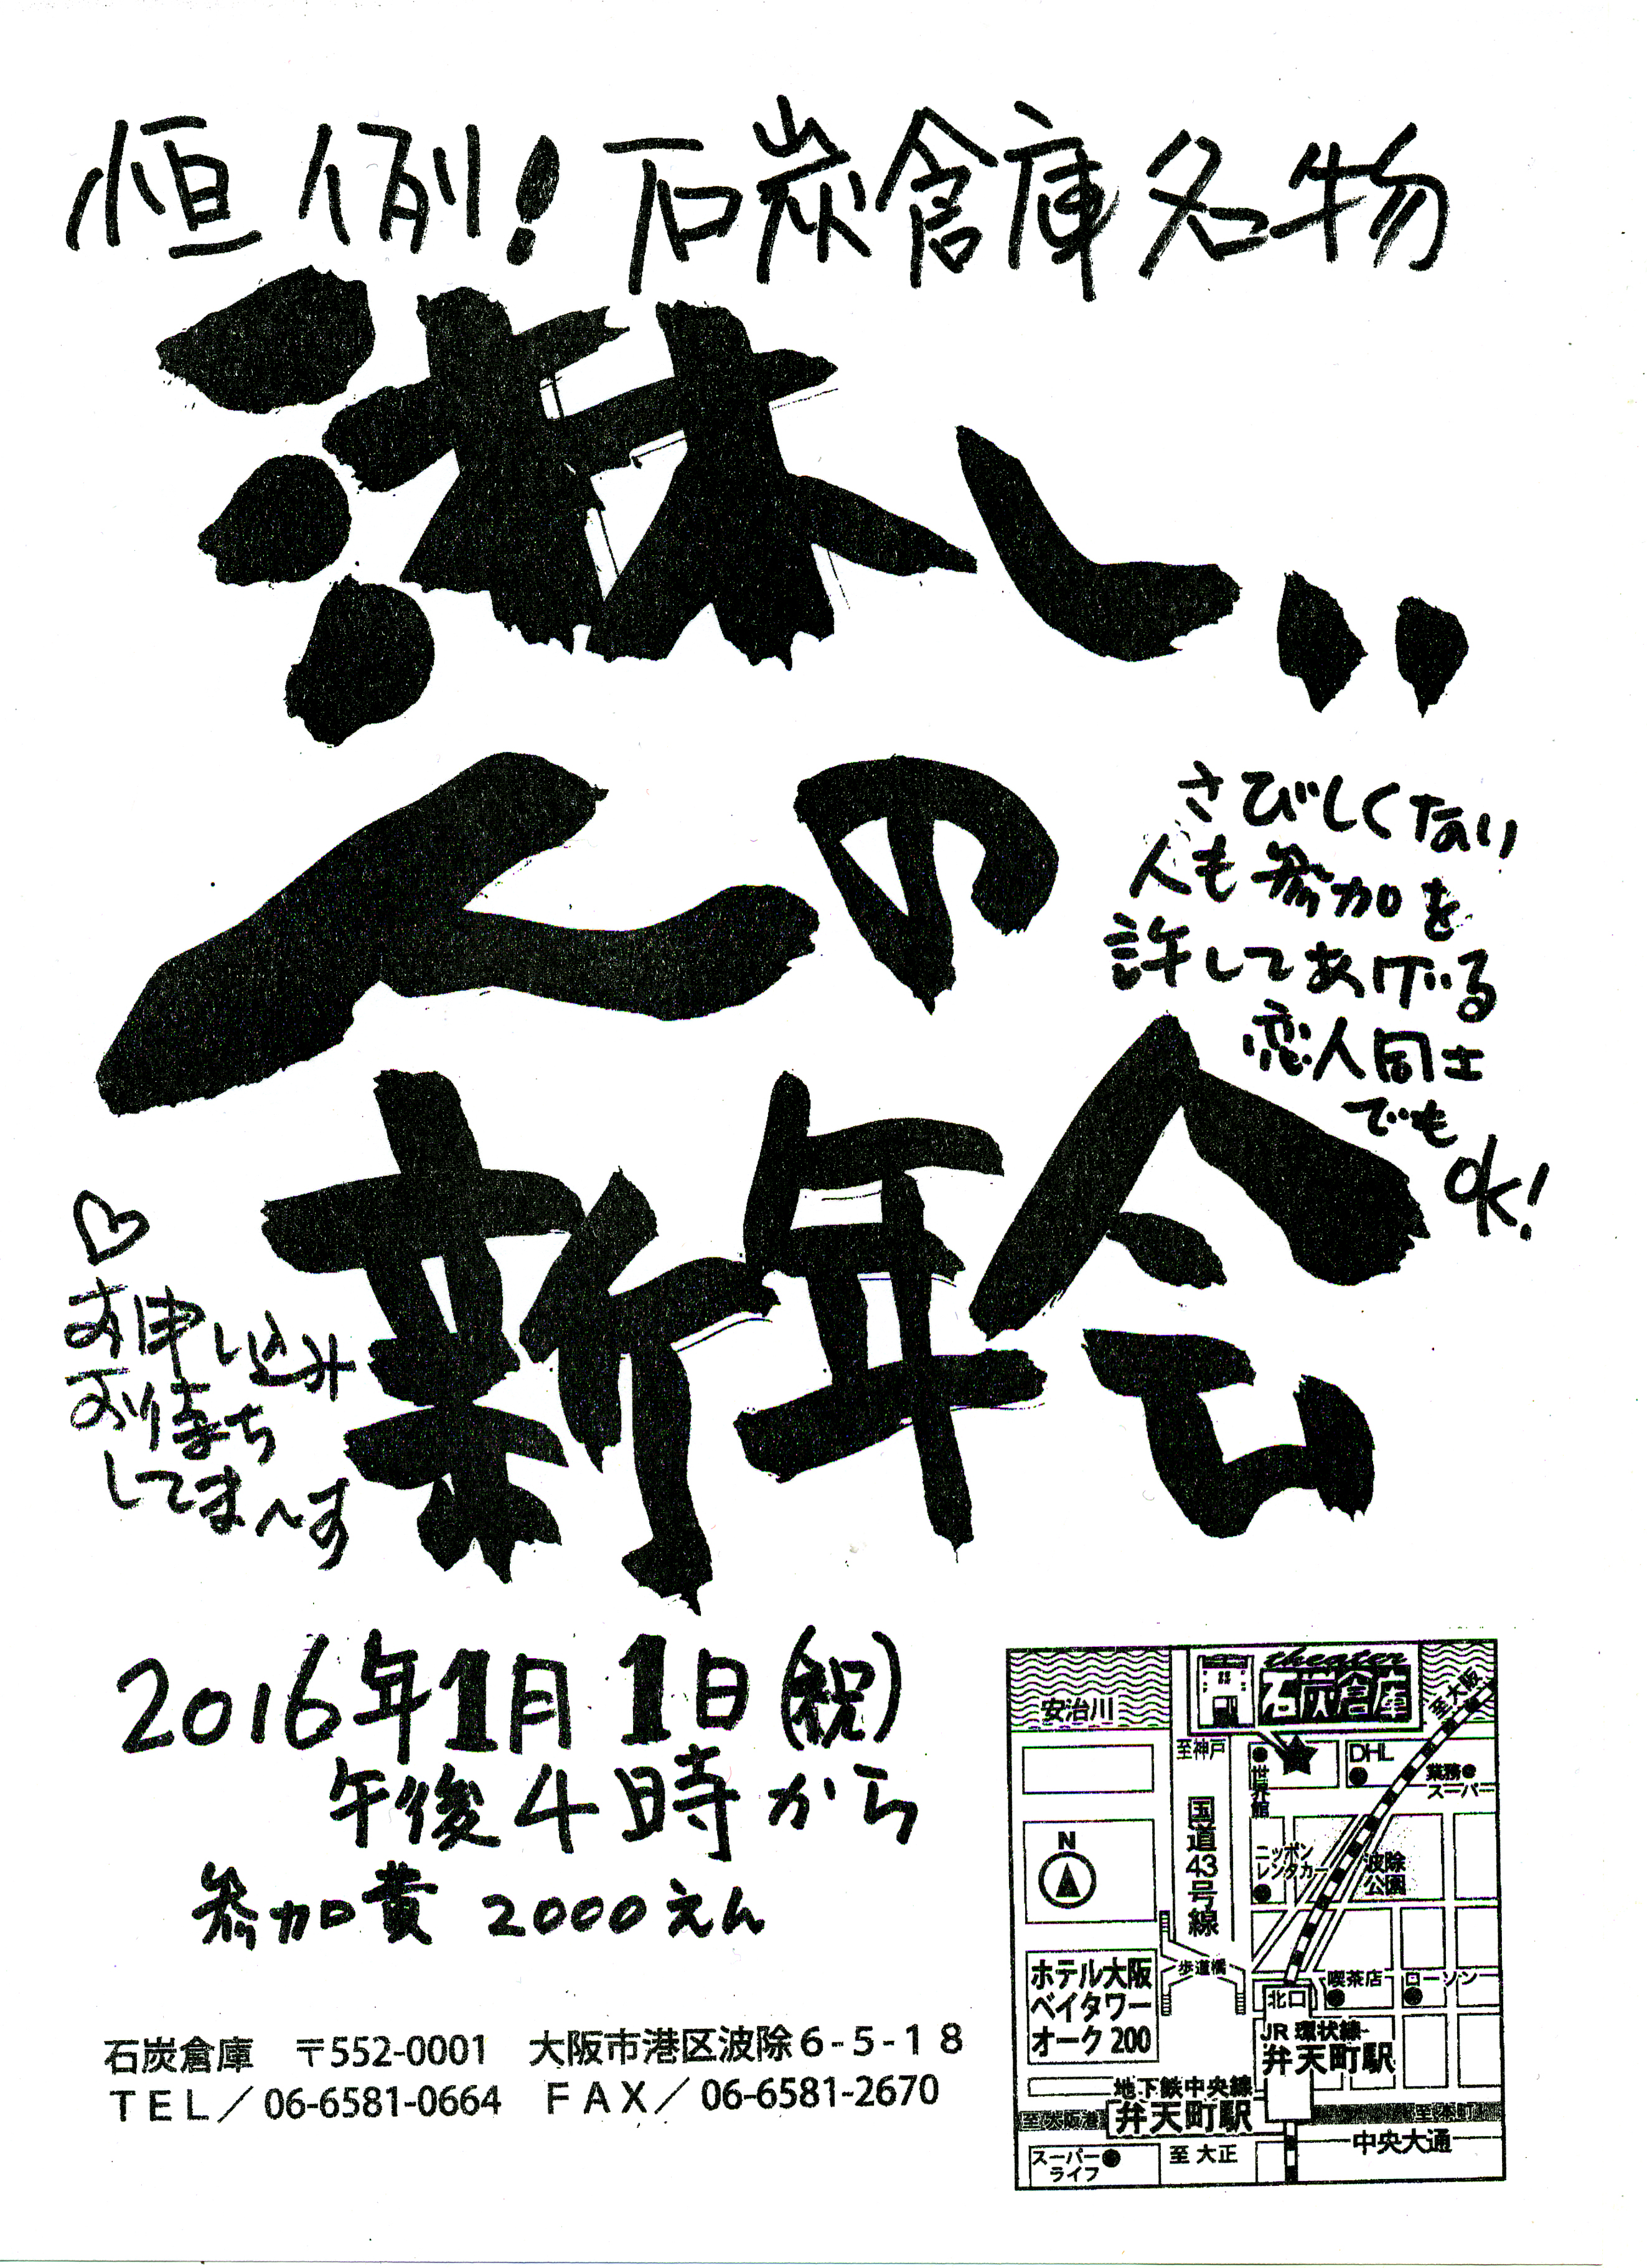 恒例!石炭倉庫名物
淋しい
人の
新年会
さびしくない
人も参加を
許してあげる
恋人同士
でも
OK!
♡
お申し込み
お待ち
してま〜す
2016年1月1日(祝)
午後4時から
参加費 2000えん
石炭倉庫 〒552-0001 大阪市港区波除6-5-18
TEL/06-6581-0664 FAX/06-6581-2670
theater
石炭倉庫
安治川
至大阪
至神戸
世界館
DHL
業務
スーパー
国道43号線
N
ニッポン
レンタカー
波除
公園
歩道橋
ホテル大阪
ベイタワー
オーク200
喫茶店
ローソン
北口
JR環状線
弁天町駅
地下鉄中央線
弁天町駅
至大阪港
至本町
中央大通
スーパー
ライフ
至大正